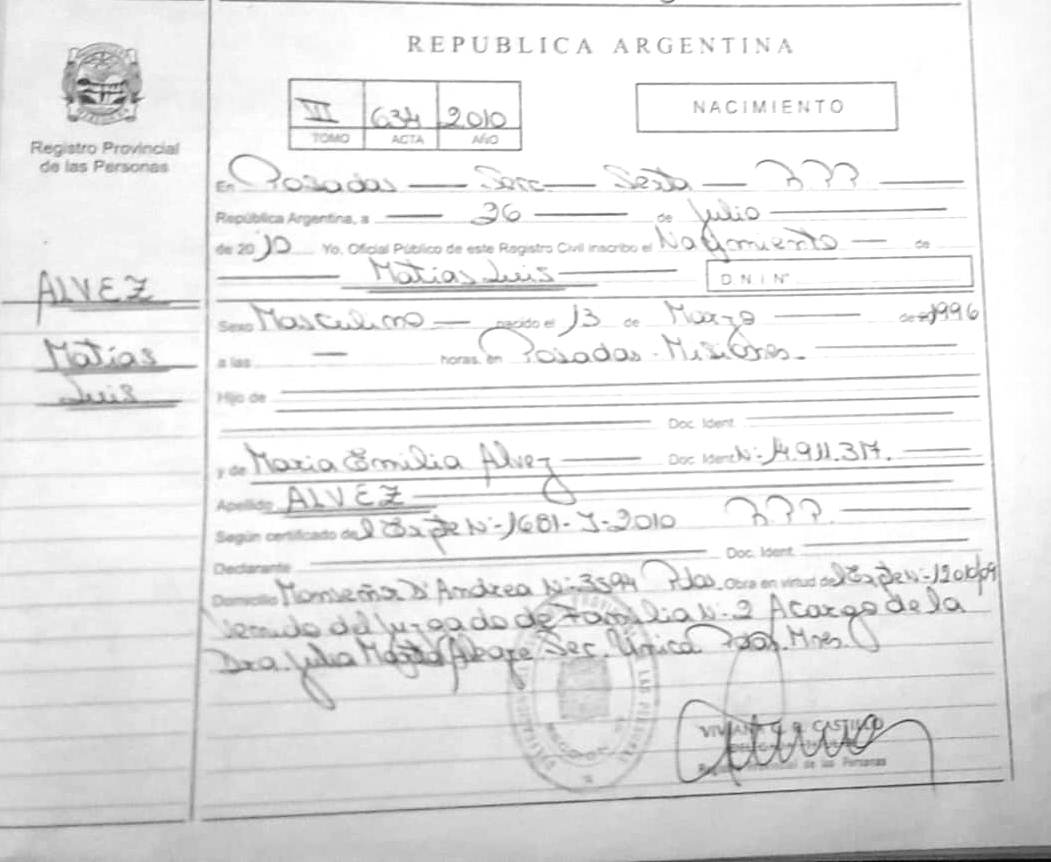 REPUBLICA ARGENTINA
VII 634 2010
TOMO ACTA AÑO
NACIMIENTO
Registro Provincial
de las Personas
En Posadas — Secc — Sexta —
República Argentina, a — 26 — de Julio —
de 2010 Yo, Oficial Público de este Registro Civil inscribo el Nacimiento — de
Matias Luis
D N I N°
ALVEZ
Matias
Luis
Sexo Masculino — nacido el 13 de Marzo — de 1996
a las — horas, en Posadas - Misiones -
Hijo de
Doc. Ident.
y de Maria Emilia Alvez — Doc. Ident N° 14.911.317.
Apellido ALVEZ
Según certificado del Expte N° 1681-J-2010
Declarante Doc. Ident.
Domicilio Monseñor D'Andrea N° 3594 Pdas. Obra en virtud del Expte N° 1201/09
venido del Juzgado de Familia N° 2 A cargo de la
Dra. Julia Sec. Única Pdas. Mnes.
VIVIANA G. R. CASTILLO
Registro Provincial de las Personas